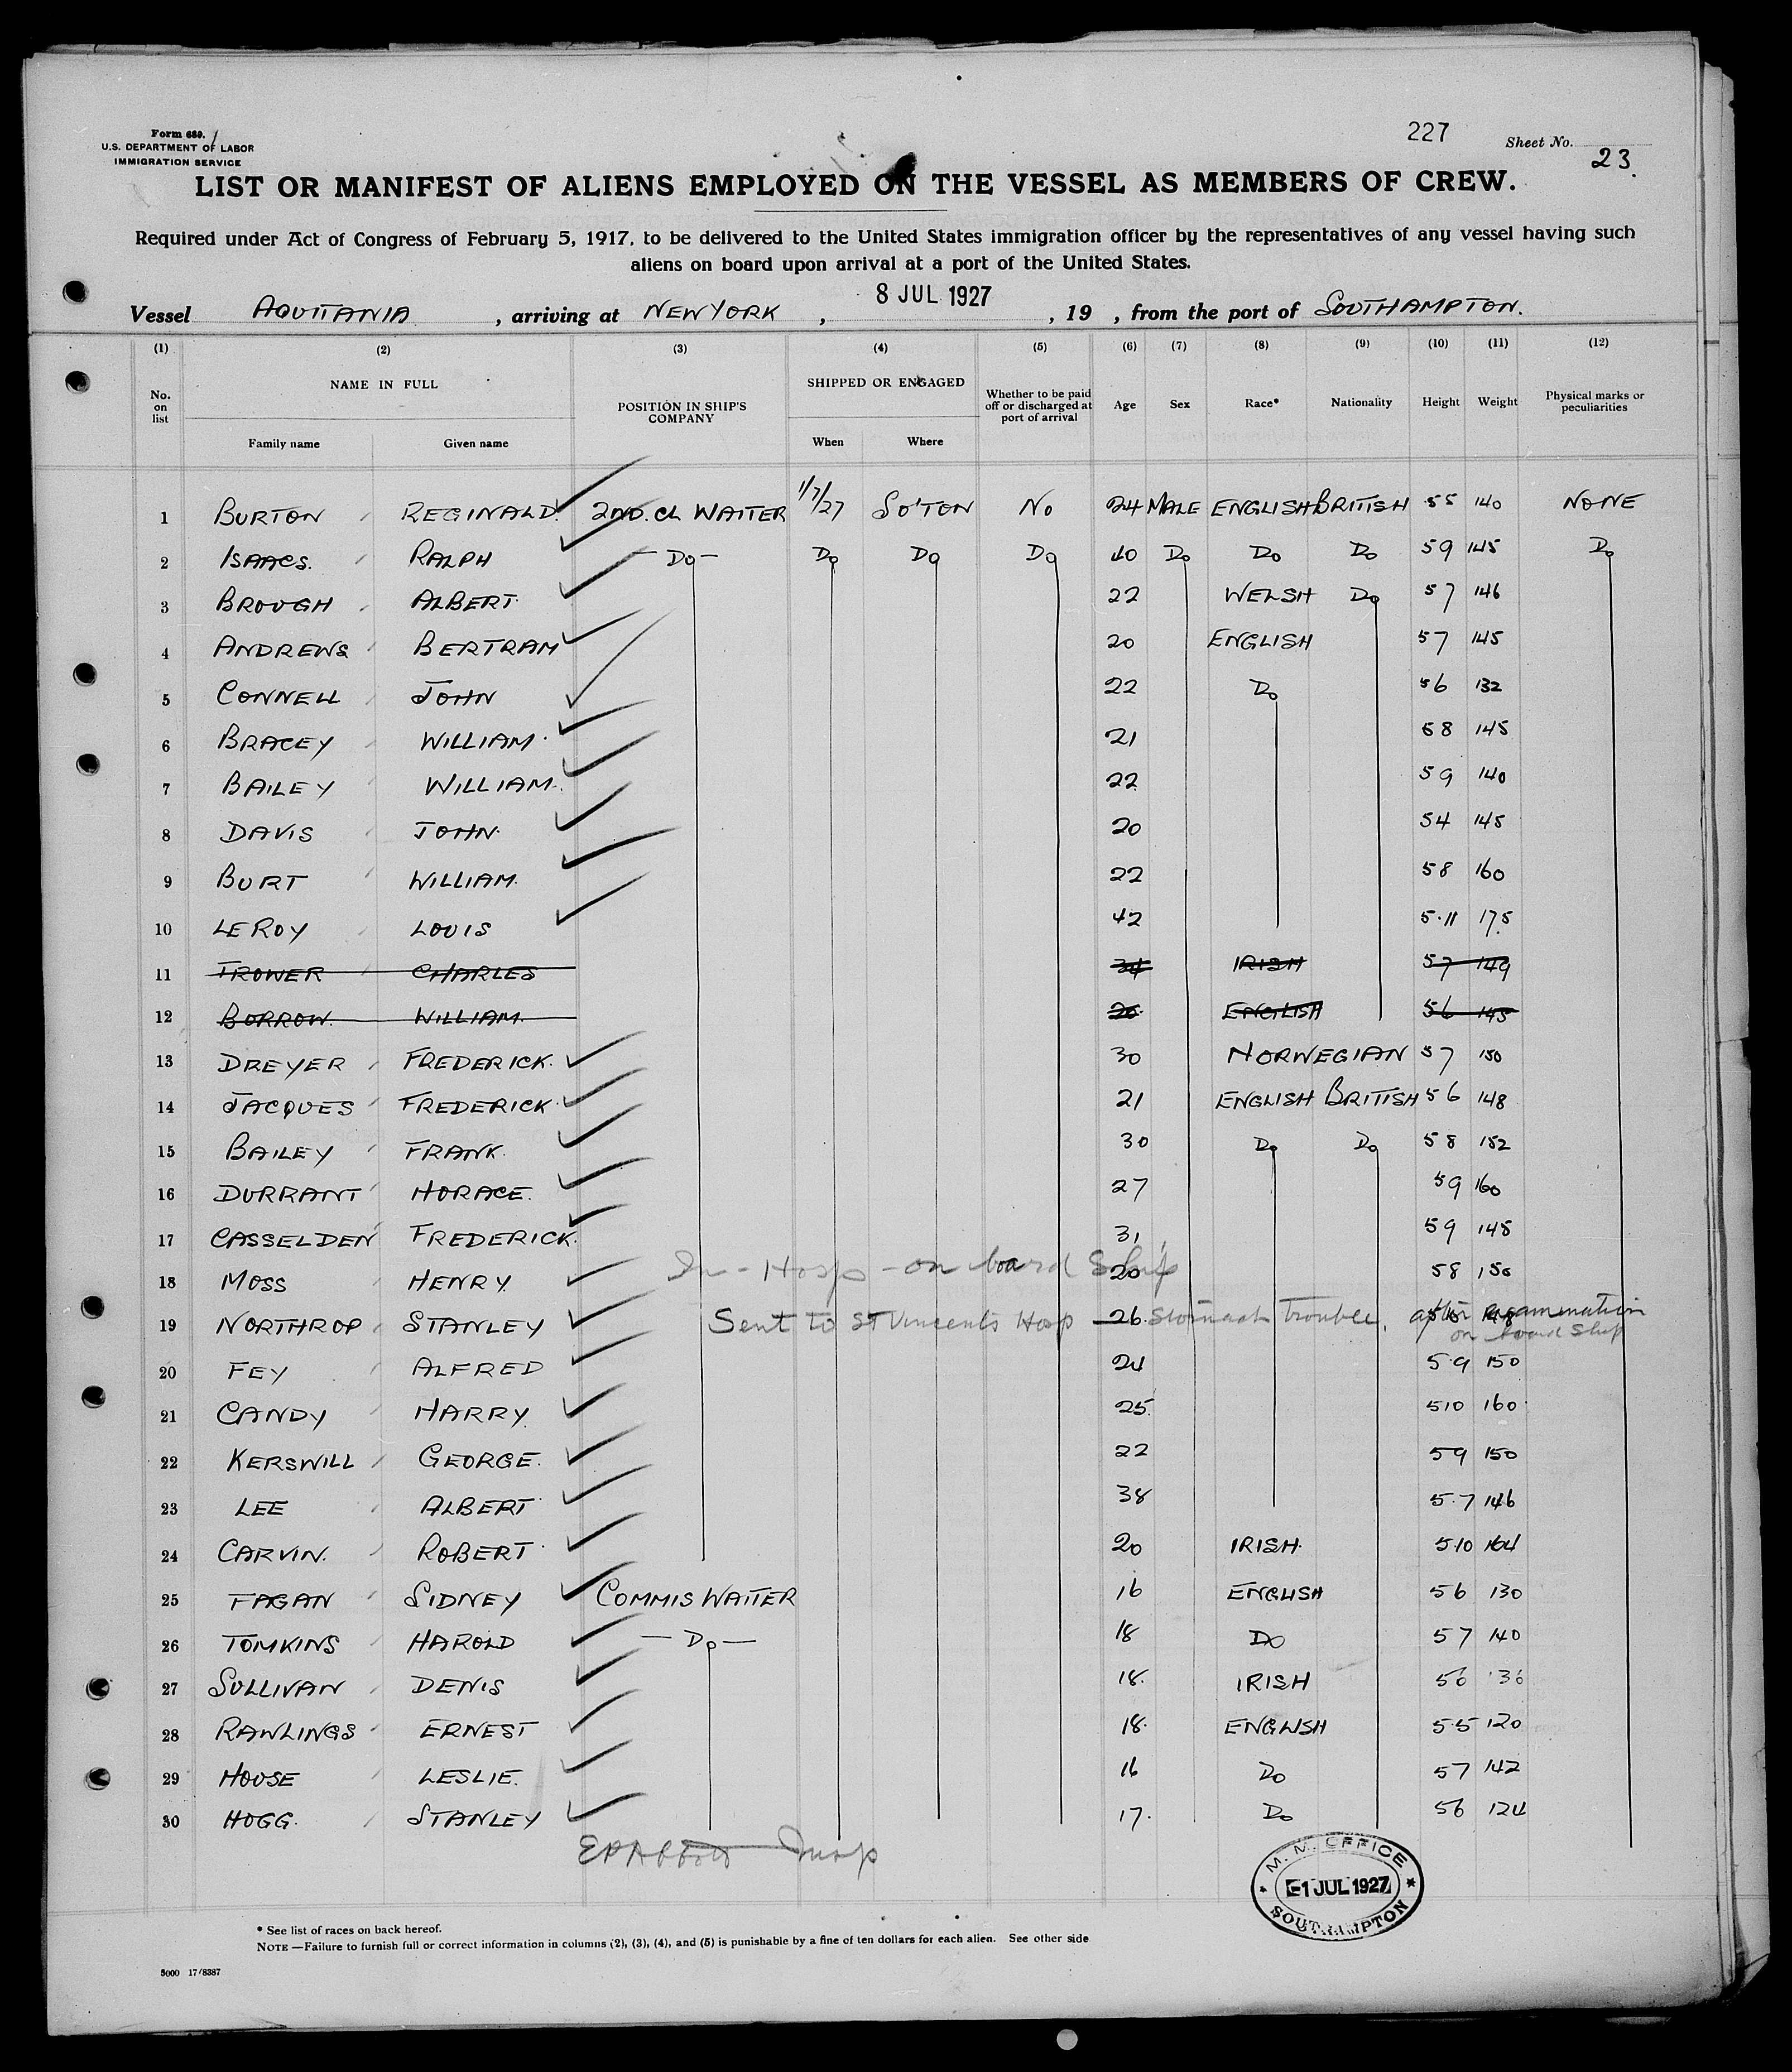 Form 689.
U.S. DEPARTMENT OF LABOR
IMMIGRATION SERVICE
227 Sheet No. 23.
LIST OR MANIFEST OF ALIENS EMPLOYED ON THE VESSEL AS MEMBERS OF CREW.
Required under Act of Congress of February 5, 1917, to be delivered to the United States immigration officer by the representatives of any vessel having such
aliens on board upon arrival at a port of the United States.
8 JUL 1927
Vessel AQUITANIA , arriving at NEW YORK , , 19 , from the port of SOUTHAMPTON.
(1) (2) (3) (4) (5) (6) (7) (8) (9) (10) (11) (12)
No. on list NAME IN FULL POSITION IN SHIP'S COMPANY SHIPPED OR ENGAGED Whether to be paid off or discharged at port of arrival Age Sex Race* Nationality Height Weight Physical marks or peculiarities
Family name Given name When Where
1 BURTON REGINALD. 2ND. CL WAITER 1/7/27 SO'TON NO 24 MALE ENGLISH BRITISH 55 140 NONE
2 ISAACS. RALPH - DO - DO DO DO 40 DO DO DO 59 145 DO
3 BROUGH ALBERT. 22 WELSH DO 57 146
4 ANDREWS BERTRAM 20 ENGLISH 57 145
5 CONNELL JOHN 22 DO 56 132
6 BRACEY WILLIAM. 21 58 145
7 BAILEY WILLIAM. 22 59 140
8 DAVIS JOHN. 20 54 145
9 BURT WILLIAM. 22 58 160
10 LEROY LOUIS 42 5.11 175
11 TROWER CHARLES 34 IRISH 57 149
12 BORROW. WILLIAM. ENGLISH 56 145
13 DREYER FREDERICK. 30 NORWEGIAN 57 150
14 JACQUES FREDERICK. 21 ENGLISH BRITISH 56 148
15 BAILEY FRANK. 30 DO DO 58 152
16 DURRANT HORACE. 27 59 160
17 CASSELDEN FREDERICK. 31 59 145
18 MOSS HENRY. In - Hosp - on board Ship 20 58 150
19 NORTHROP STANLEY Sent to St Vincent's Hosp 26 Stomach trouble, after examination
on board ship
20 FEY ALFRED 24 5.9 150
21 CANDY HARRY. 25. 510 160
22 KERSWILL GEORGE. 22 59 150
23 LEE ALBERT 38 5.7 146
24 CARVIN. ROBERT 20 IRISH. 510 164
25 FAGAN SIDNEY COMMIS WAITER 16 ENGLISH 56 130
26 TOMKINS HAROLD - DO - 18 DO 57 140
27 SULLIVAN DENIS 18. IRISH 56 136
28 RAWLINGS ERNEST 18. ENGLISH 5.5 120
29 HOUSE LESLIE. 16 DO 57 142
30 HOGG. STANLEY 17. DO 56 124
Insp
M. M. OFFICE
1 JUL 1927
SOUTHAMPTON
* See list of races on back hereof.
NOTE—Failure to furnish full or correct information in columns (2), (3), (4), and (5) is punishable by a fine of ten dollars for each alien. See other side
5000 17/8387